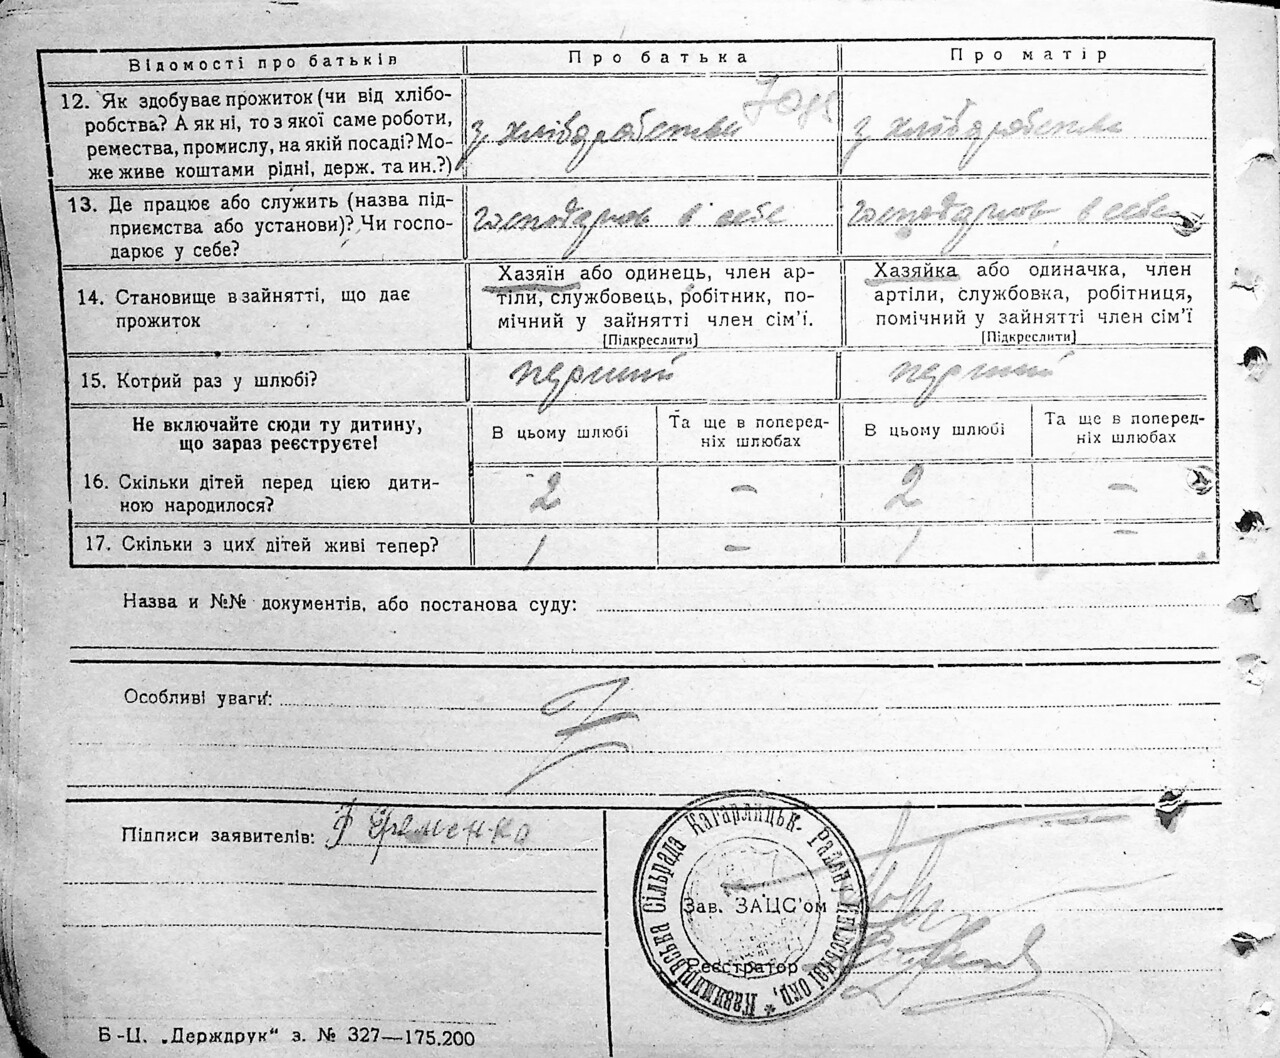 Відомості про батьків
Про батька
Про матір
12. Як здобуває прожиток (чи від хлібо-
робства? А як ні, то з якої саме роботи,
ремества, промислу, на якій посаді? Мо-
же живе коштами рідні, держ. та ин.?)
з хліборобства
з хліборобства
13. Де працює або служить (назва під-
приємства або установи)? Чи госпо-
дарює у себе?
в себе
в себе
14. Становище в зайнятті, що дає
прожиток
Хазяїн або одинець, член ар-
тіли, службовець, робітник, по-
мічний у зайнятті член сім'ї.
[Підкреслити]
Хазяйка або одиначка, член
артіли, службовка, робітниця,
помічний у зайнятті член сім'ї
[Підкреслити]
15. Котрий раз у шлюбі?
перший
перший
Не включайте сюди ту дитину,
що зараз реєструєте!
В цьому шлюбі
Та ще в поперед-
ніх шлюбах
В цьому шлюбі
Та ще в поперед-
ніх шлюбах
16. Скільки дітей перед цією дити-
ною народилося?
2
–
2
–
17. Скільки з цих дітей живі тепер?
1
–
1
–
Назва и №№ документів, або постанова суду:
Особливі уваги:
Підписи заявителів:
Сільрада Кагарлицьк. Району Київської окр.
Зав. ЗАЦС'ом
Реєстратор
Б-Ц. „Держдрук“ з. № 327—175.200